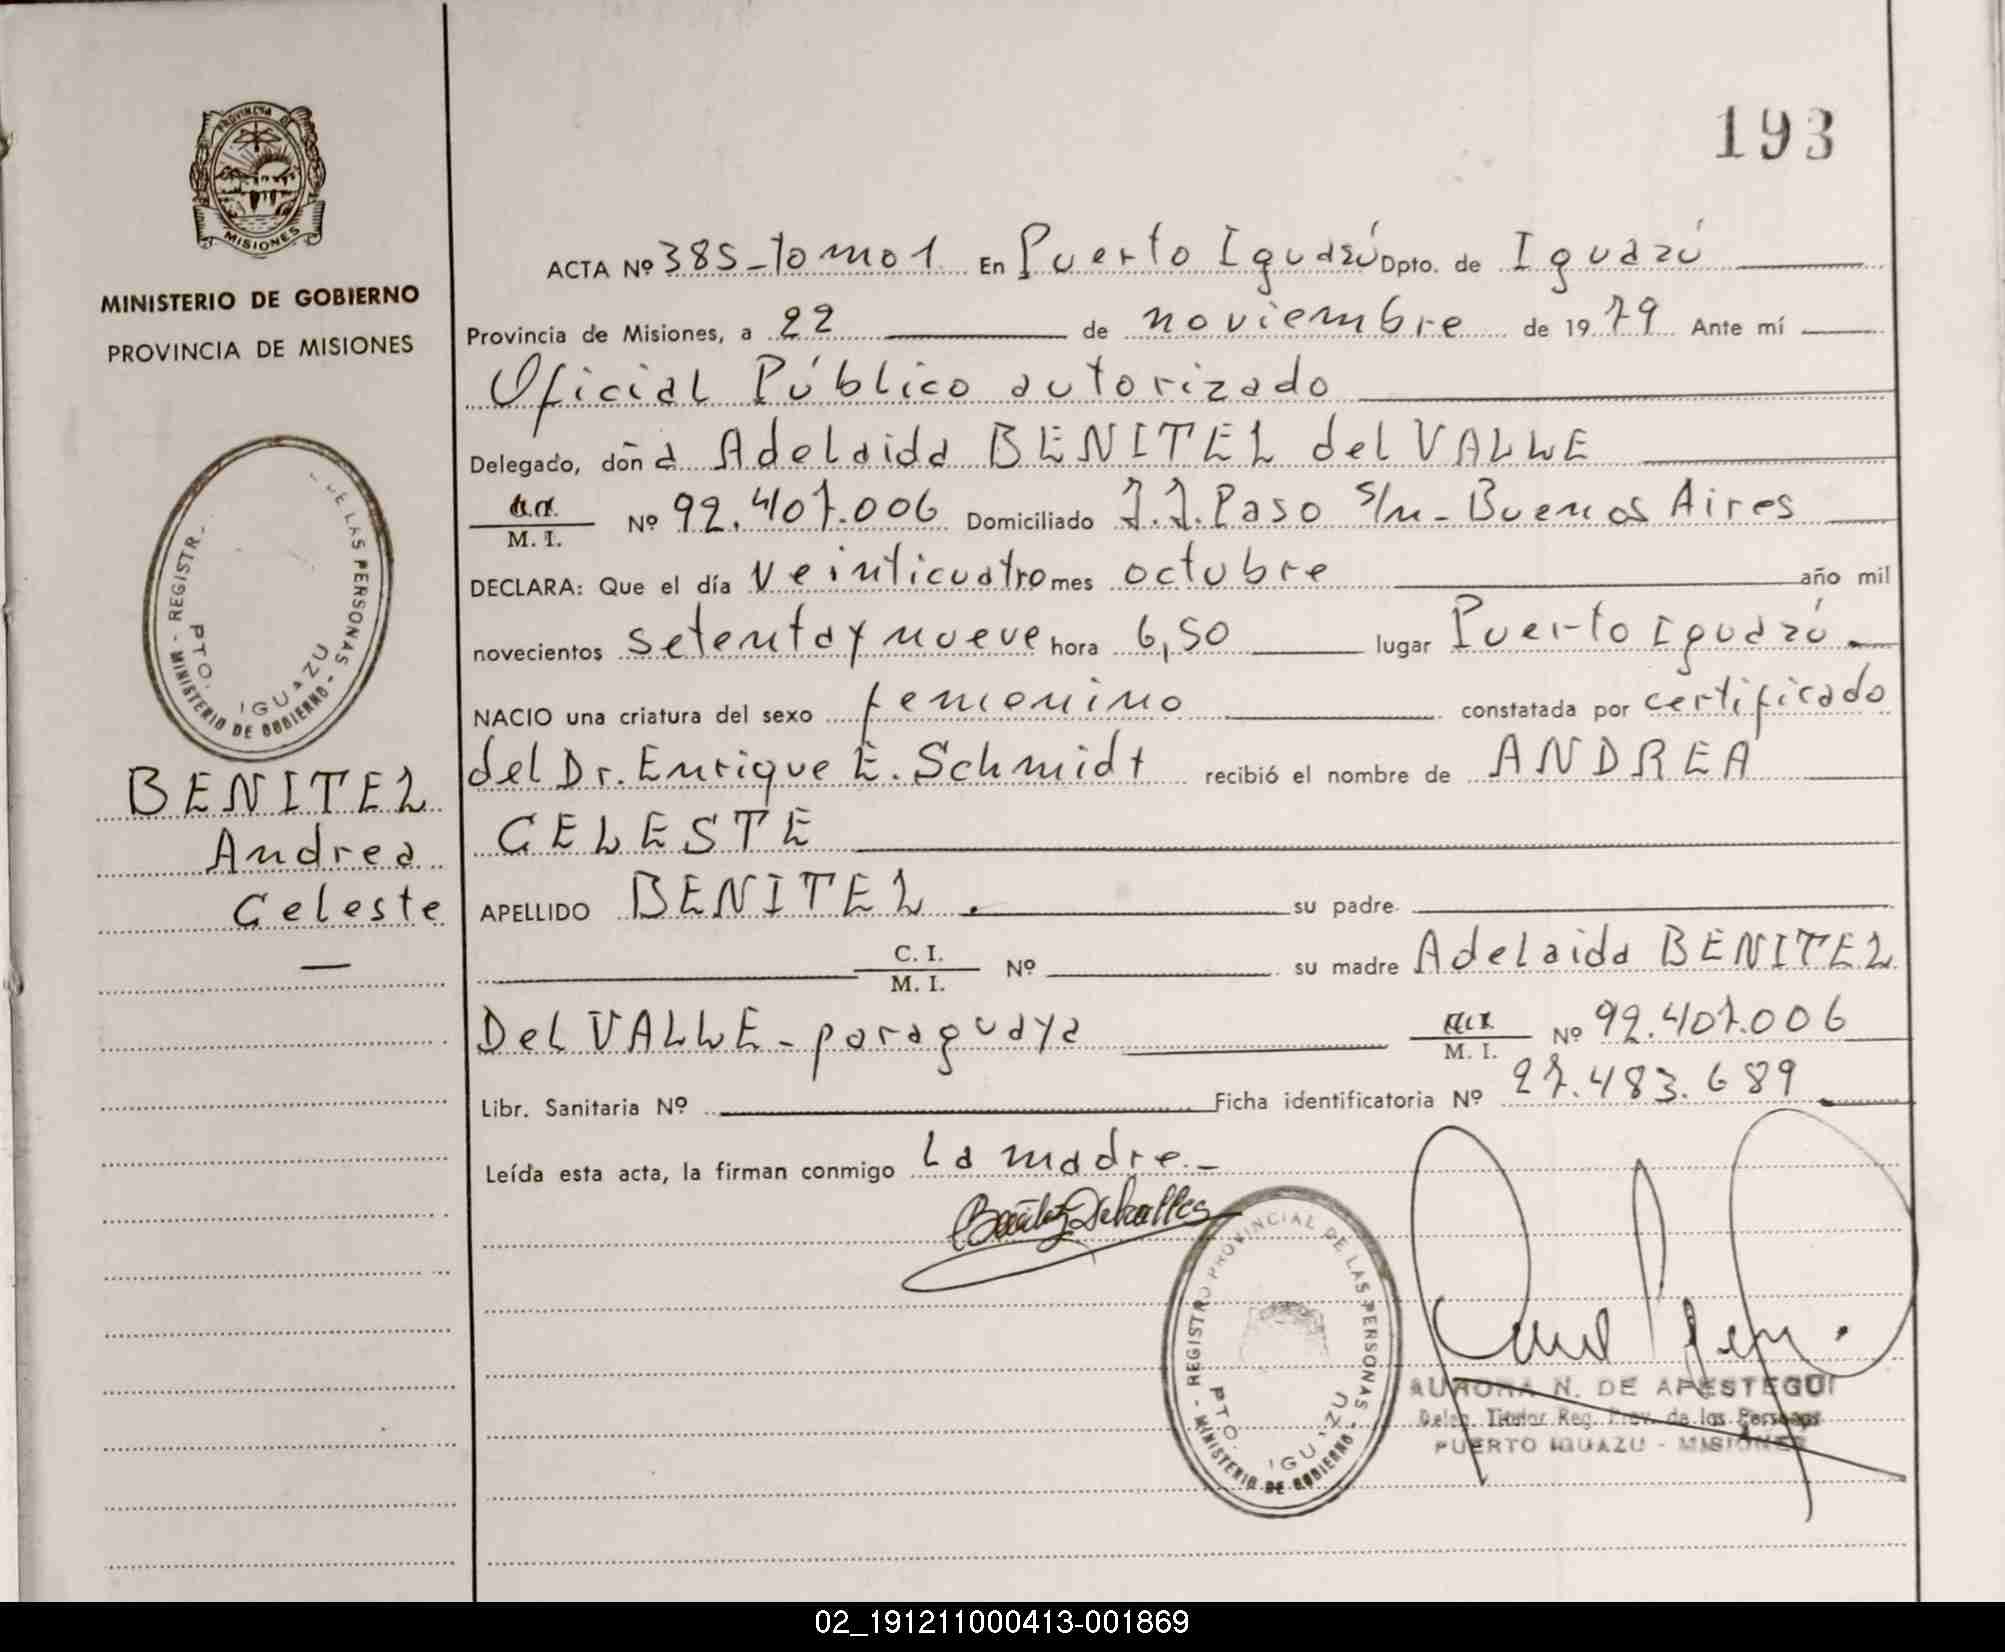 193
PROVINCIA DE
MISIONES
MINISTERIO DE GOBIERNO
PROVINCIA DE MISIONES
DE LAS PERSONAS
REGISTR
MINISTERIO DE GOBIERNO
PTO. IGUAZU
BENITEZ
Andrea
Celeste
ACTA Nº 385-tomo 1 En Puerto Iguazú Dpto. de Iguazú
Provincia de Misiones, a 22 de noviembre de 1979 Ante mí
Oficial Público autorizado
Delegado, doña Adelaida BENITEZ del VALLE
M. I. Nº 92.407.006 Domiciliado J.J. Paso s/n - Buenos Aires
DECLARA: Que el día veinticuatro mes octubre año mil
novecientos setenta y nueve hora 6,50 lugar Puerto Iguazú
NACIO una criatura del sexo femenino constatada por certificado
del Dr. Enrique E. Schmidt recibió el nombre de ANDREA
CELESTE
APELLIDO BENITEZ. su padre
C. I.
M. I. Nº su madre Adelaida BENITEZ
Del VALLE - paraguaya M. I. Nº 92.407.006
Libr. Sanitaria Nº Ficha identificatoria Nº 27.483.689
Leída esta acta, la firman conmigo La madre.-
REGISTRO PROVINCIAL DE LAS PERSONAS
MINISTERIO DE GOBIERNO
PTO. IGUAZU
AURORA N. DE APESTEGUI
Deleg. Titular Reg. Prov. de las Personas
PUERTO IGUAZU - MISIONES
02_191211000413-001869